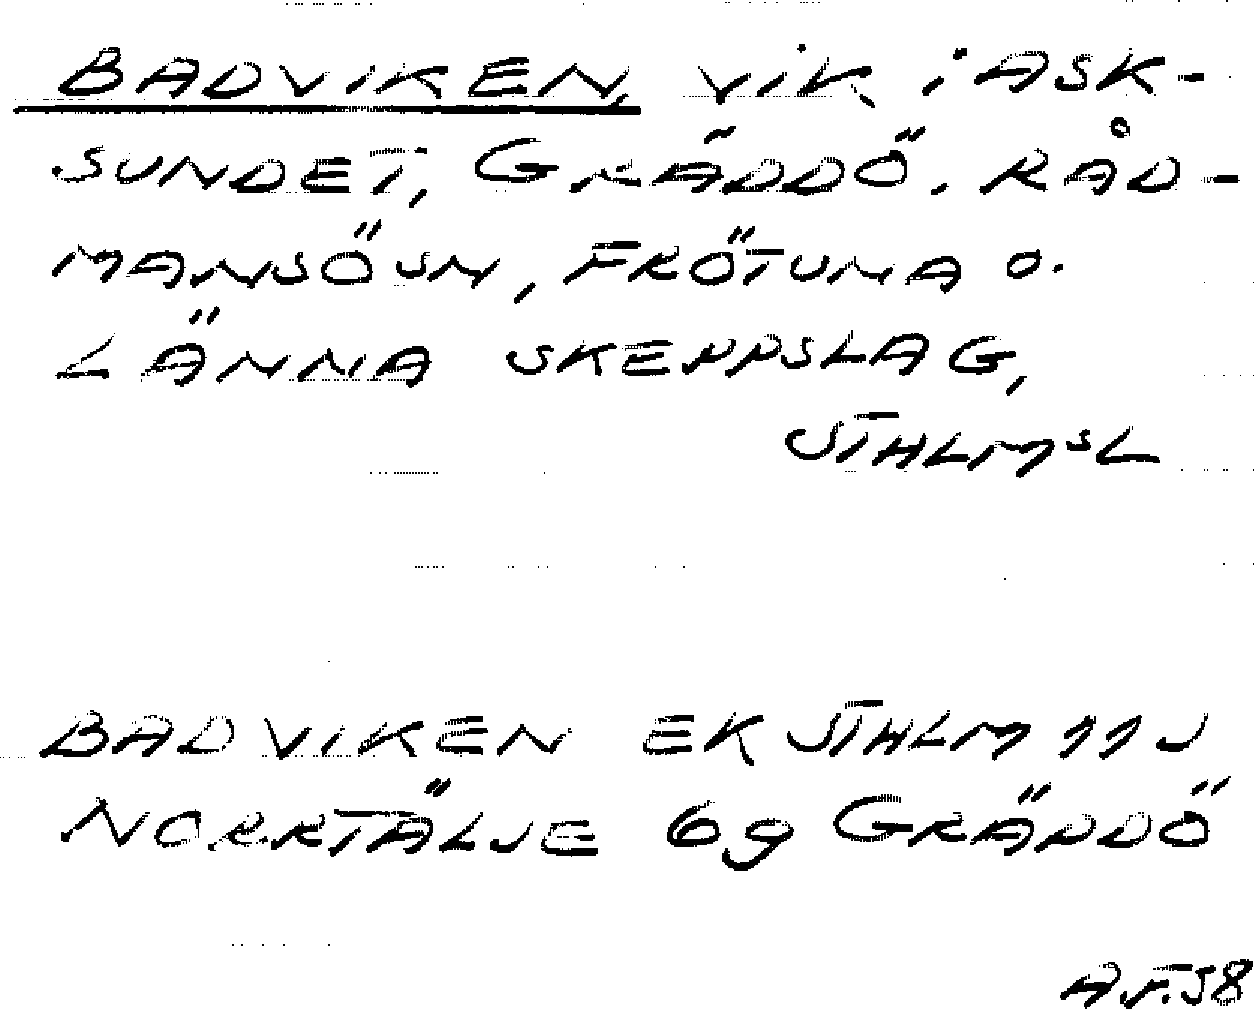 BADVIKEN, VIK I ASK-
SUNDET, GRÄDDÖ, RÅD-
MANSÖ SN, FRÖTUNA O.
LÄNNA SKEPPSLAG,
STHLMSL
BADVIKEN EK STHLM 11 J
NORRTÄLJE 6g GRÄDDÖ
A.F.58